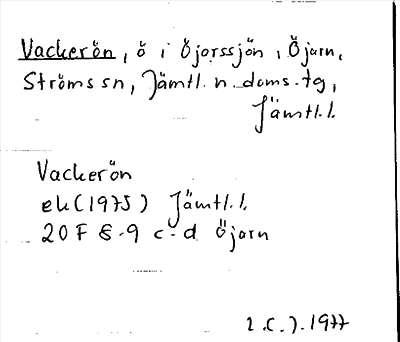 Vackerön, ö i Öjarssjön, Öjarn,
Ströms sn, Jämtl. n. doms. tg,
Jämtl. l.
Vackerön
ek (1975) Jämtl. l.
20 F 8-9 c-d Öjarn
1977